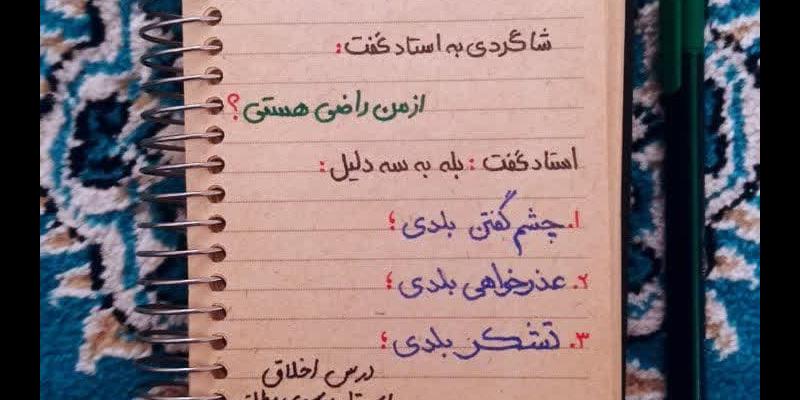 شاگردی به استاد گفت:
از من راضی هستی؟
استاد گفت: بله به سه دلیل:
۱. چشم گفتن بلدی؛
۲. عذرخواهی بلدی؛
۳. تشکر بلدی؛
درس اخلاق